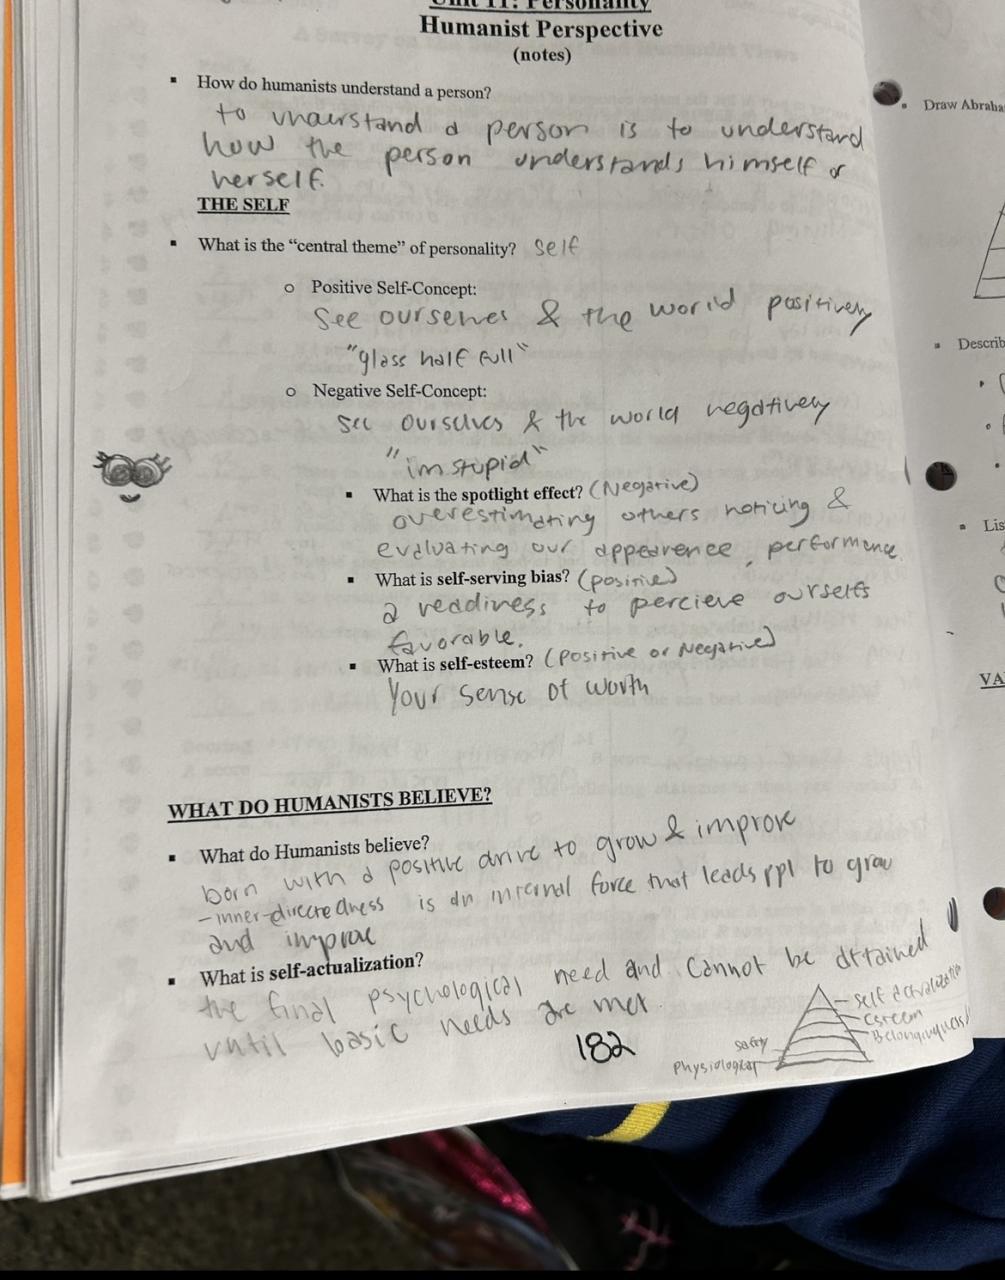 Unit 11: Personality
Humanist Perspective
(notes)
▪ How do humanists understand a person?
to understand a person is to understand
how the person understands himself or
herself.
THE SELF
▪ What is the “central theme” of personality? self
o Positive Self-Concept:
See ourselves & the world positively
"glass half full"
o Negative Self-Concept:
see ourselves & the world negatively
"im stupid"
▪ What is the spotlight effect? (Negative)
overestimating others noticing &
evaluating our appearence, performance
▪ What is self-serving bias? (positive)
a readiness to percieve ourselfs
favorable.
▪ What is self-esteem? (Positive or Negative)
Your sense of worth
WHAT DO HUMANISTS BELIEVE?
▪ What do Humanists believe?
born with a positive drive to grow & improve
-inner-directedness is an internal force that leads ppl to grow
and improve
▪ What is self-actualization?
the final psychological need and cannot be attained
until basic needs are met.
182
self actualization
Esteem
Belongingness/
safety
Physiological
▪ Draw Abraha
▪ Describ
▪ Lis
VA